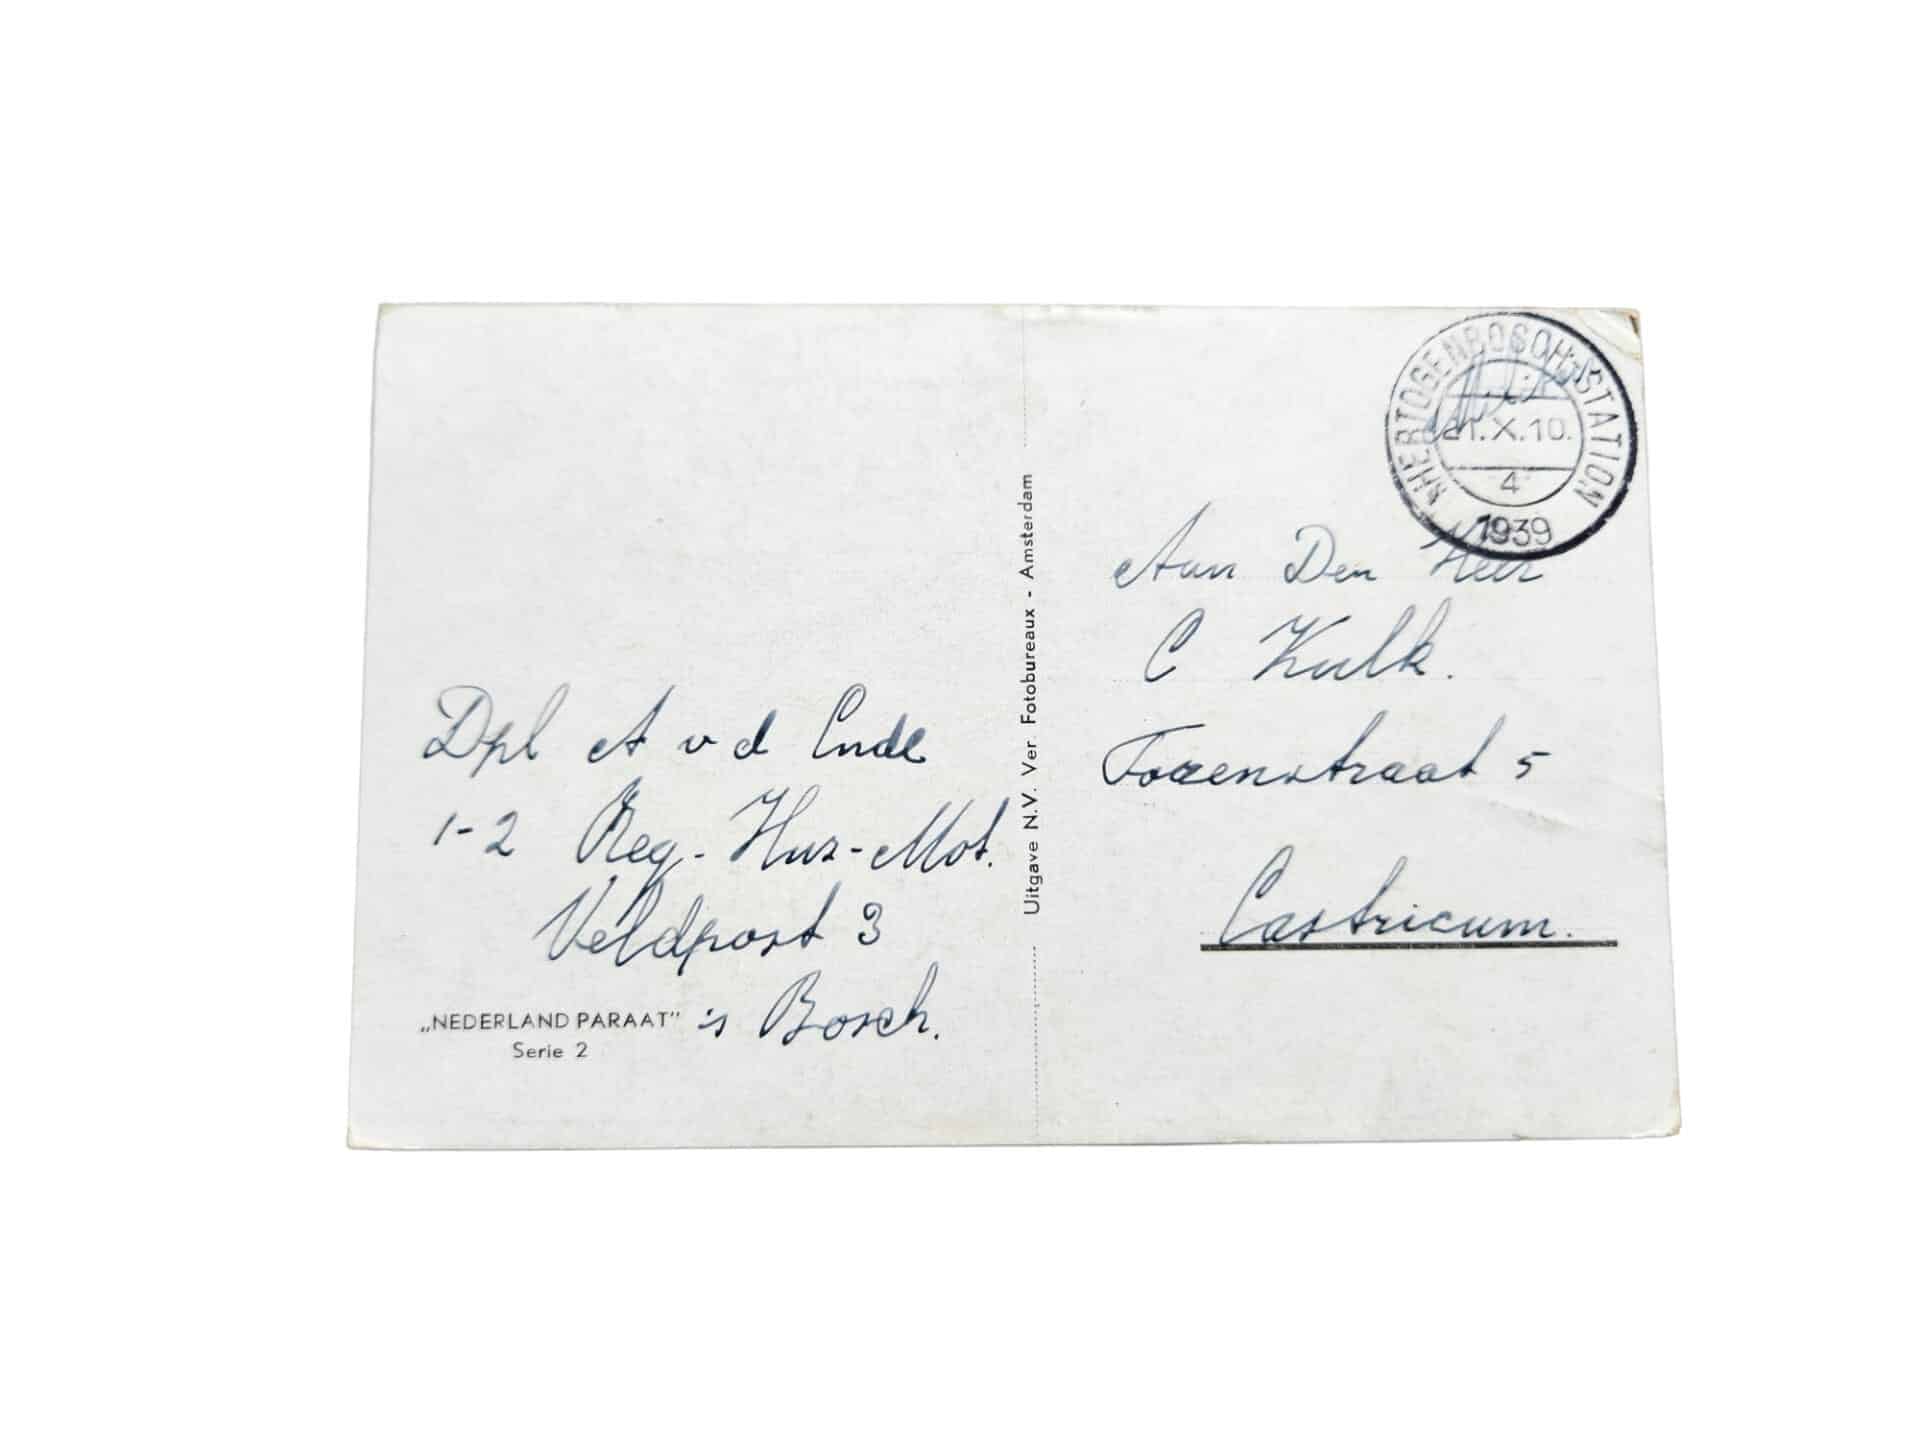 'sHERTOGENBOSCH-STATION
21.X.10.
4
1939
Milit
Aan Den Heer
C Kulk.
straat 5
Castricum.
Dpl A v d Ende
1-2 Reg- Huz-Mot.
Veldpost 3
's Bosch.
„NEDERLAND PARAAT"
Serie 2
Uitgave N.V. Ver. Fotobureaux - Amsterdam